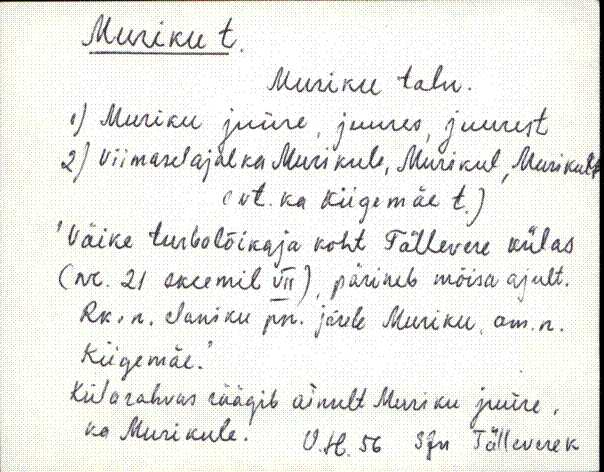 Muriku t.
Muriku talu.
1) Muriku juure, juures, juurest
2) viimasel ajal ka Murikule, Murikul, Murikult
(vt. ka Kiigemäe t.)
"Väike turbalõikaja koht Tällevere külas
(nr. 21 skeemil VII), pärineb mõisa ajult.
Rk. n. Janiku pn. järele Muriku, am. n.
Kiigemäe."
Külarahvas räägib ainult Muriku juure,
ka Murikule. V.H. 56 SJn Tällevere k